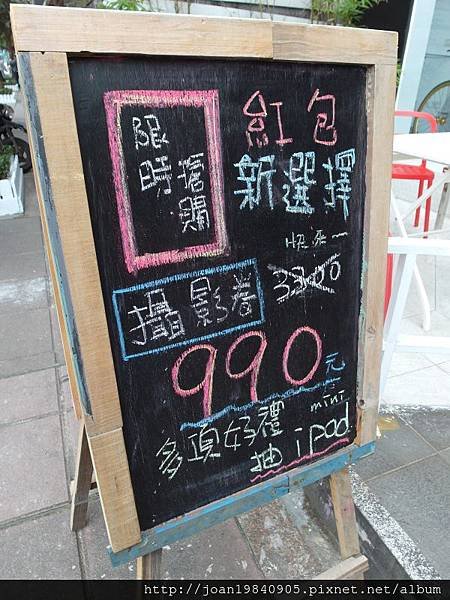 限時搶購
紅包
新選擇
快來一
3300
攝影卷
990元
多項好禮
抽 mini ipad
http://joan19840905.pixnet.net/blog